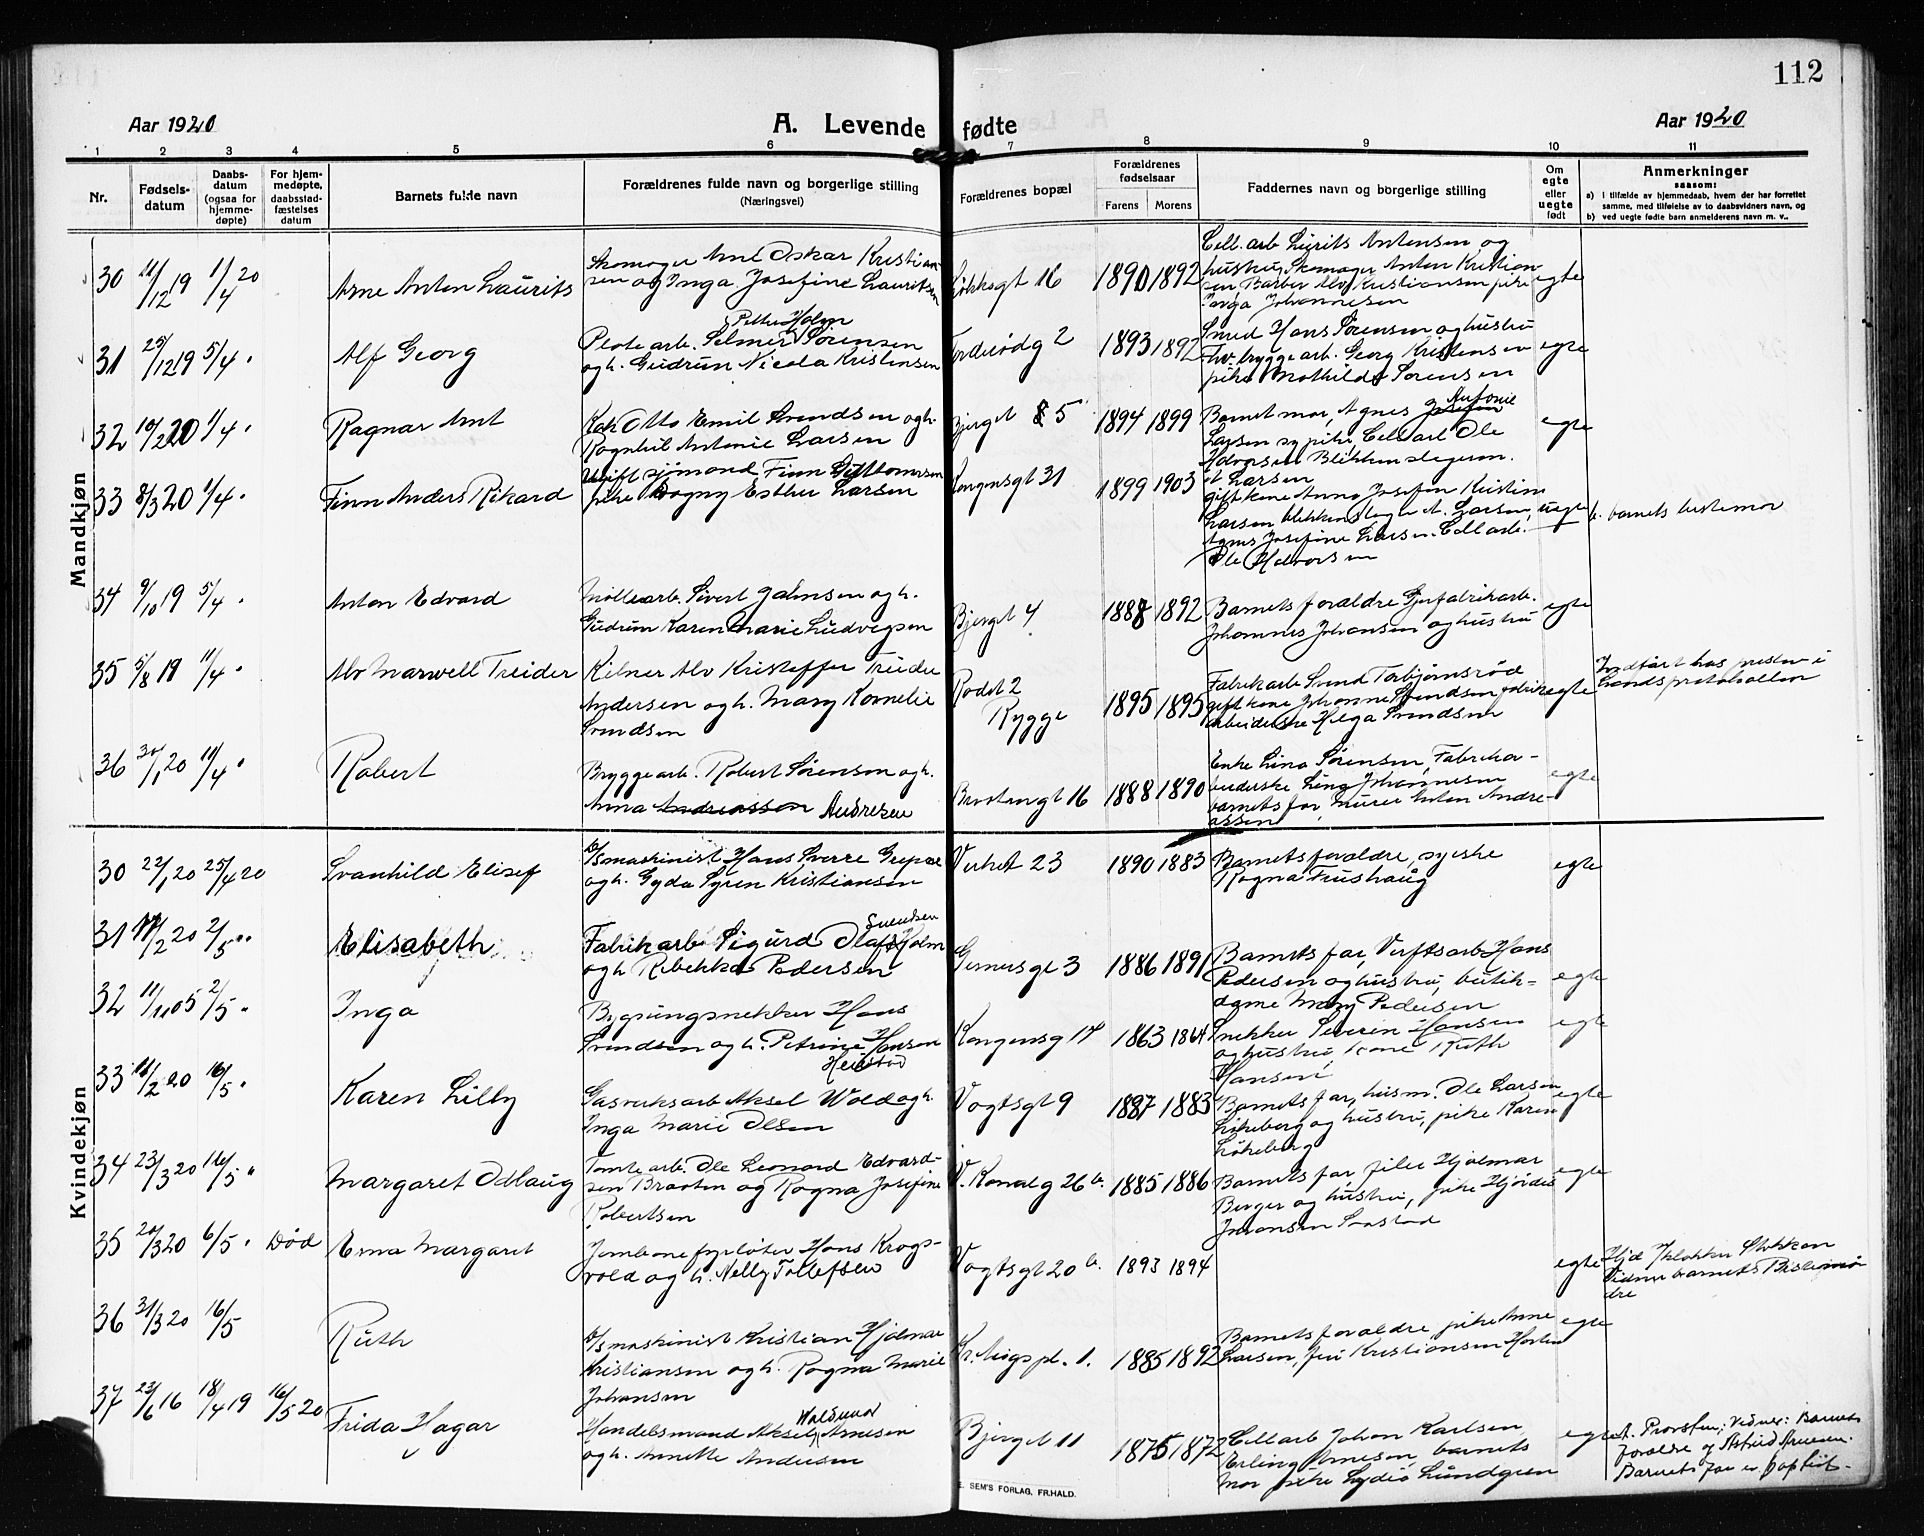 112
Aar 1920
A. Levende fødte
Aar 1920
1 2 3 4 5 6 7 8 9 10 11
Nr.
Fødsels-
datum
Daabs-
datum
(ogsaa for
hjemme-
døpte)
For hjem-
medøpte,
daabsstad-
fæstelses
datum
Barnets fulde navn
Forældrenes fulde navn og borgerlige stilling
(Næringsvei)
Forældrenes bopæl
Forældrenes
fødselsaar
Farens Morens
Faddernes navn og borgerlige stilling
Om
egte
eller
uegte
født
Anmerkninger
saasom:
a) i tilfælde av hjemmedaab, hvem der har forrettet
samme, med tilføielse av to daabsvidners navn, og
b) ved uegte fødte barn anmelderens navn m. v..
Mandkjøn
30 21/12 19 1/4 20 Arne Anton Laurits
Skomager Arne Oskar Kristian-
sen og Inga Josefine Lauritsen
16 1890 1892
Cell. arb Lurits Antensen og
hustru, Skomager Anton Kristian
sen Barber Alv Kristiansen pike
Johannesen
egte
31 25/12 19 5/4 " Alf Georg
Petter Holm
Plate arb. Selmer Sørensen
og h. Gudrun Nicola Kristensen
2 1893 1892
Smed Hans Sørensen og hustru
Fhv. bryggearb. Georg Kristensen
pike Mathilde Sørensen
egte
32 10/2 20 1/4 " Ragnar Arnt
Kok Otto Emil Svendsen og h.
Ragnhil Antonie Larsen
Bjerget 5 1894 1899
Barnet mor, Agnes Antonie
Larsen sypike, Cell arb Ole
Halvorsen Blikkenslagersv.
Larsen
egte
33 8/3 20 1/4 " Finn Anders Rikard
Ugift sjømand Finn
pike Dagny Esther Larsen
Kongensgt 31 1899 1903
gift kone Anna Josefin Kristine
Larsen blikkenslager A. Larsen,
Agnes Josefine Larsen. Cell arb.
Ole Halvorsen
uegte b. barnets bestemor
34 9/10 19 5/4 " Anton Edvard
Møllearb. Sivert Johnsen og h.
Gudrun Karen Marie Ludvigsen
Bjerget 4 1888 1892
Barnets forældre Gjærfabrikarb.
Johannes Johansen og hustru
egte
35 5/8 19 11/4 " Alv Marwell Treider
Kelner Alv Kristoffer Treider
Andersen og h. Mary Kornelie
Svendsen
Rødst 2
Rygge
1895 1895
Fabrikarb Svend Torbjørnsrød
gift kone Johanne Svendsen fabrik
arbeiderske Helga Svendsen
egte
Indført hos presten i
Landsprotokollen
36 30/1 20 11/4 " Robert
Bryggearb. Robert Sørensen og h.
Anna Andreassen Andresen
16 1888 1890
Enke Lina Sørensen, Fabrikar-
beiderske Lina Johannesen
barnets far, murer Anton Andre-
assen
egte
Kvindekjøn
30 22/1 20 25/4 20 Svanhild Elisef
D/s maskinist Hans Sverre Grepne
og h. Gyda Syren Kristiansen
Verket 23 1890 1883
Barnets forældre, syerske
Ragna Frushaug
egte
31 11/2 20 2/5 " Elisabeth
Svendsen
Fabrikarb Sigurd Olaf Holm
og h. Rebekka Pedersen
Gernersgt 3 1886 1891
Barnets far, Verftsarb Hans
Pedersen og hustru, butik-
dame Mary Pedersen
egte
32 11/11 05 2/5 " Inga
Bygningsnekker Hans
Svendsen og h. Petrine Hansen
Kongensg 14 1863 1864
Snekker Severin Hansen
og hustru, kone Ruth
Hansen
egte
33 11/2 20 16/5 " Karen Lilly
Heistad
Gasverksarb Aksel Wold og h.
Inga Marie Olsen
Vogtsgt 9 1887 1883
Barnets far, husm. Ole Larsen
Løkeberg og hustru, pike Karen
Løkeberg
egte
34 23/3 20 16/5 " Margaret Odlaug
Tomtearb. Ole Leonard Edvard-
sen Braaten og Ragna Josefine
Robertsen
V. Kanalg 26 b. 1885 1886
Barnets far, filer Hjalmar
Berger og hustru, pike Hjørdis
Johansen
egte
35 20/3 20 6/5 " Død Erna Margaret
Jernbanefyrbøter Hans Krogs-
vold og h. Nelly Tollefsen
Vogtsgt 20 b. 1893 1894
egte
Hjd Klokker Stokkan
Vidner barnets Bestemø
dre
36 31/3 20 16/5 Ruth
D/s maskinist Kristian Hjalmar
Kristiansen og h. Ragna Marie
Johansen
Kr. Augs pl. 1. 1885 1892
Barnets forældre, pike Anne
Larsen, Kristiansen
egte
37 23/6 16 18/4 19 16/5 20 Frida Hagar
Waldemar
Handelsmand Aksel Arnesen
og h. Annette Andersen
Bjerget 11 1875 1872
Cellarb Johan Karlsen
Erling Arnesen, barnets
mor pike Lydia Lundgren
egte
a. Provsten; Vidner: Barnets
forældre og Astrid Arnesen.
Barnets far er baptist.
E. SEM'S FORLAG, FR.HALD.